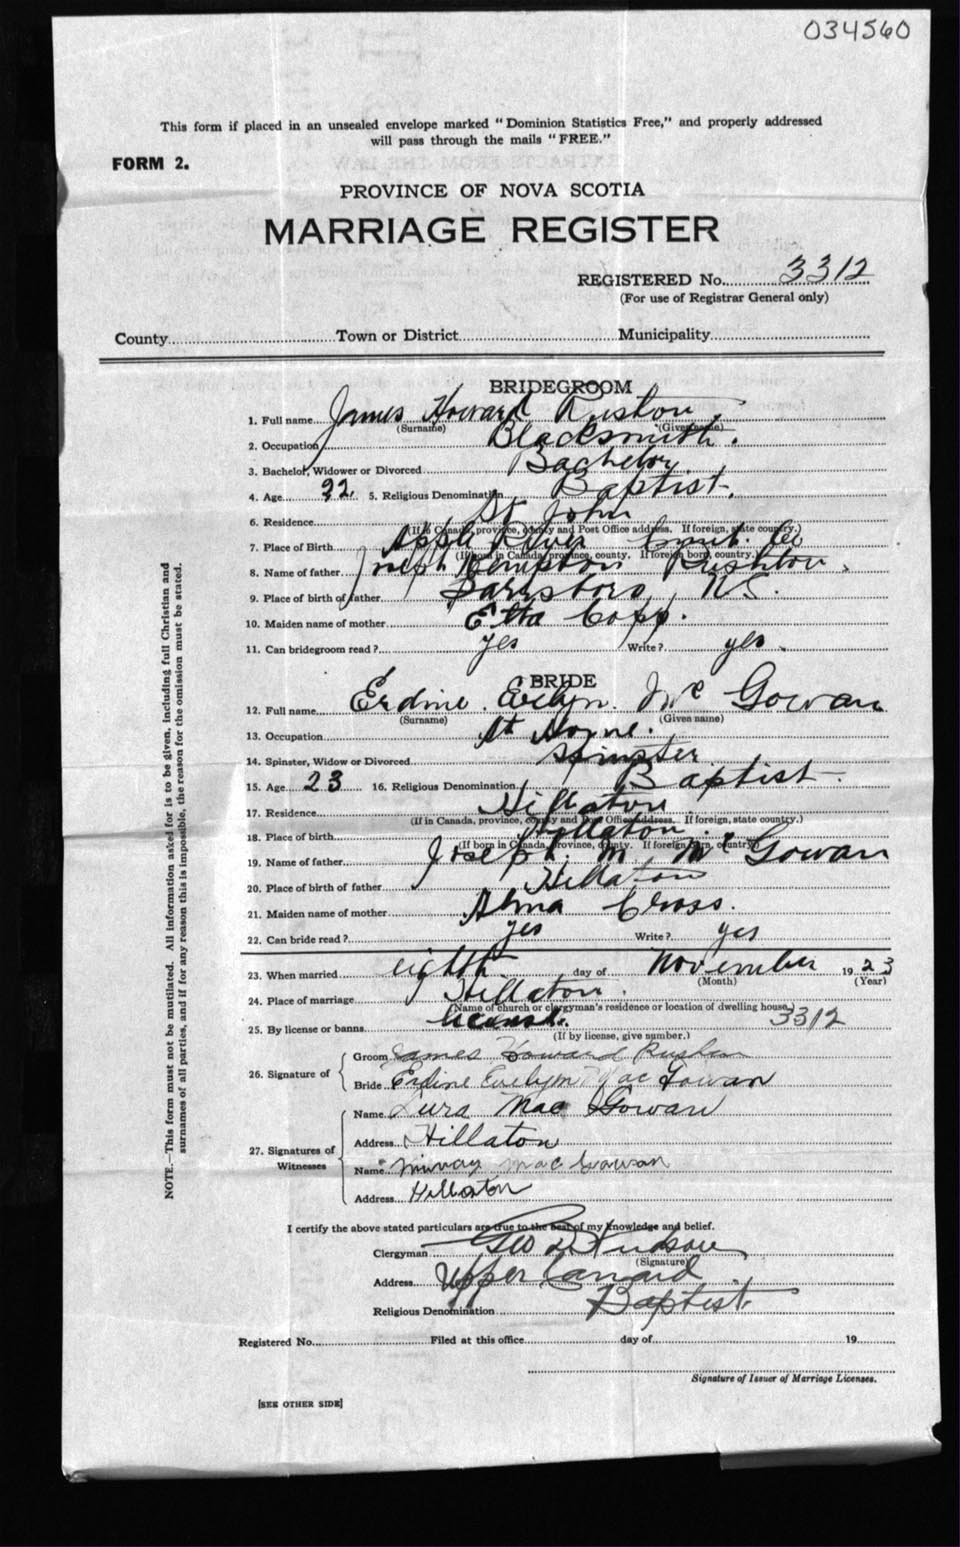 034560
This form if placed in an unsealed envelope marked "Dominion Statistics Free," and properly addressed
will pass through the mails "FREE."
FORM 2.
PROVINCE OF NOVA SCOTIA
MARRIAGE REGISTER
REGISTERED No. 3312
(For use of Registrar General only)
County Town or District Municipality
BRIDEGROOM
1. Full name James Howard Rushton
(Surname) (Given name)
2. Occupation Blacksmith.
3. Bachelor, Widower or Divorced Bachelor
4. Age 22. 5. Religious Denomination Baptist.
6. Residence St John
(If in Canada, province, county and Post Office address. If foreign, state country.)
7. Place of Birth Apple River Cumb. Co
(If born in Canada, province, county. If foreign born, country.)
8. Name of father Joseph Kempton Rushton.
9. Place of birth of father Parrsboro, N.S.
10. Maiden name of mother Etta Copp.
11. Can bridegroom read? yes Write? yes.
BRIDE
12. Full name Erdine Evelyn McGowan
(Surname) (Given name)
13. Occupation At Home.
14. Spinster, Widow or Divorced Spinster
15. Age 23 16. Religious Denomination Baptist
17. Residence Hillaton
(If in Canada, province, county and Post Office address. If foreign, state country.)
18. Place of birth Hillaton.
(If born in Canada, province, county. If foreign born, country)
19. Name of father Joseph. M. McGowan
20. Place of birth of father Hillaton
21. Maiden name of mother Alma Cross.
22. Can bride read? yes Write? yes
23. When married eighth day of November 1923
(Month) (Year)
24. Place of marriage Hillaton.
(Name of church or clergyman's residence or location of dwelling house.)
25. By license or banns license. 3312
(If by license, give number.)
26. Signature of
Groom James Howard Rushton
Bride Erdine Evelyn MacGowan
27. Signatures of Witnesses
Name Mac Gowan
Address Hillaton
Name Murray MacGowan
Address Hillaton
I certify the above stated particulars are true to the best of my knowledge and belief.
Clergyman Geo D Hudson
(Signature)
Address Upper Canard
Religious Denomination Baptist.
Registered No. Filed at this office day of 19
Signature of Issuer of Marriage Licenses.
[SEE OTHER SIDE]
NOTE.—This form must not be mutilated. All information asked for is to be given, including full Christian and
surnames of all parties, and if for any reason this is impossible, the reason for the omission must be stated.